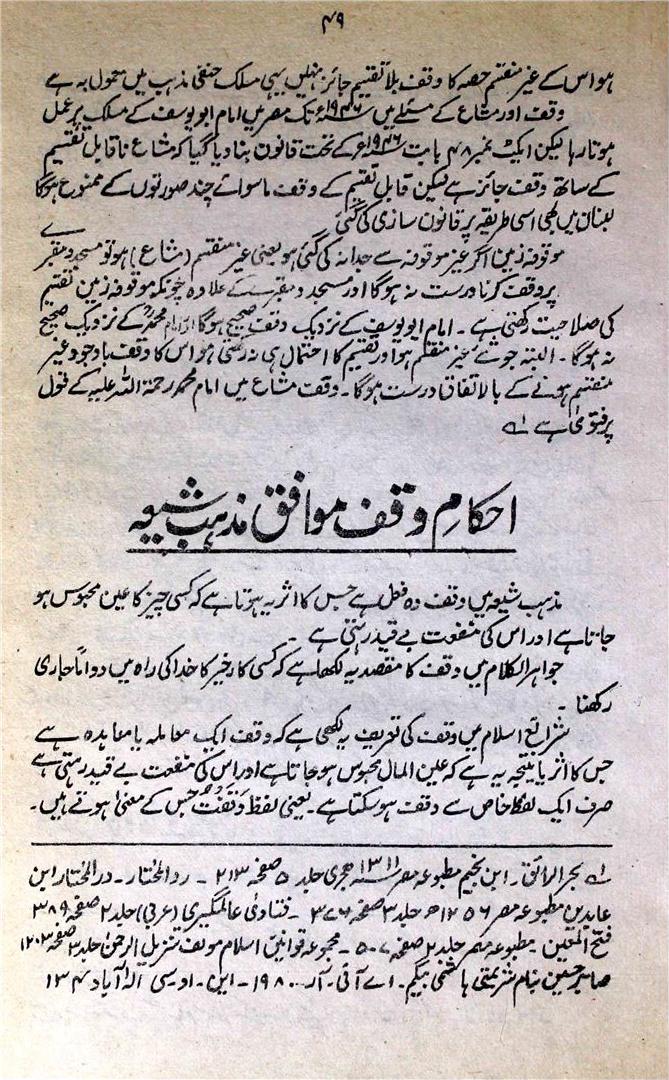 ۴۹
ہو اس کے غیر منقسم حصہ کا وقف بلا تقسیم جائز نہیں یہی مسلک حنفی مذہب میں معمول بہ ہے
وقف اور مشاع کے مسئلے میں ۱۹۴۶ء تک مصر میں امام ابو یوسف کے مسلک پر عمل
ہوتا رہا لیکن ایکٹ نمبر ۴۸ بابت ۱۹۴۶ء کے تحت قانون بنا دیا گیا کہ مشاع ناقابل تقسیم
کے ساتھ وقف جائز ہے لیکن قابل تقسیم کے وقف ماسوائے چند صورتوں کے ممنوع ہوگا
لبنان میں بھی اسی طریقہ پر قانون سازی کی گئی
موقوفہ زمین اگر غیر موقوفہ سے جدا نہ کی گئی ہو یعنی غیر منقسم (مشاع) ہو تو مسجد و مقبرے
پر وقف کرنا درست نہ ہوگا اور مسجد و مقبرے کے علاوہ چونکہ موقوفہ زمین تقسیم
کی صلاحیت رکھتی ہے ۔ امام ابو یوسف کے نزدیک وقف صحیح ہوگا اور امام محمدؒ کے نزدیک صحیح
نہ ہوگا ۔ البتہ جو شے غیر منقسم ہو اور تقسیم کا احتمال ہی نہ رکھتی ہو اس کا وقف باوجود غیر
منقسم ہونے کے بالاتفاق درست ہوگا ۔ وقف مشاع میں امام محمد رحمۃ اللہ علیہ کے قول
پر فتویٰ ہے لے
احکامِ وقف موافق مذہب شیعہ
مذہب شیعہ میں وقف وہ فعل ہے جس کا اثر یہ ہوتا ہے کہ کسی چیز کا عین محبوس ہو
جاتا ہے اور اس کی منفعت بے قید رہتی ہے ۔
جواہر الکلام میں وقف کا مقصد یہ لکھا ہے کہ کسی کار خیر کا خدا کی راہ میں دواماً جاری
رکھنا ۔
شرائع اسلام میں وقف کی تعریف یہ لکھی ہے کہ وقف ایک معاملہ یا معاہدہ ہے
جس کا اثر یا نتیجہ یہ ہے کہ عین المال محبوس ہو جاتا ہے اور اس کی منفعت بے قید رہتی ہے
صرف ایک لفظ خاص سے وقف ہو سکتا ہے ۔ یعنی لفظ وَقَفْتُ جس کے معنیٰ ہوتے ہیں۔
لے بحر الرائق ۔ ابن نجیم مطبوعہ مصر ۱۳۱۱ ہجری جلد ۵ صفحہ ۲۱۳ ۔ رد المختار ۔ در المختار ابن
عابدین مطبوعہ مصر ۱۲۵۶ھ جلد ۳ صفحہ ۳۷۶ ۔ فتاویٰ عالمگیری (عربی) جلد ۲ صفحہ ۳۸۹
فتح المعین مطبوعہ مصر جلد ۲ صفحہ ۵۰۷ ۔ مجموعہ قوانین اسلام مولف تنزیل الرحمٰن جلد ۳ صفحہ ۱۲۰۳
صابر حسین بنام شریمتی ہاشمی بیگم ۔ اے آئی ۔ آر ۔ ۱۹۸۰ ۔ این ۔ او ۔ سی الہ آباد ۱۳۴